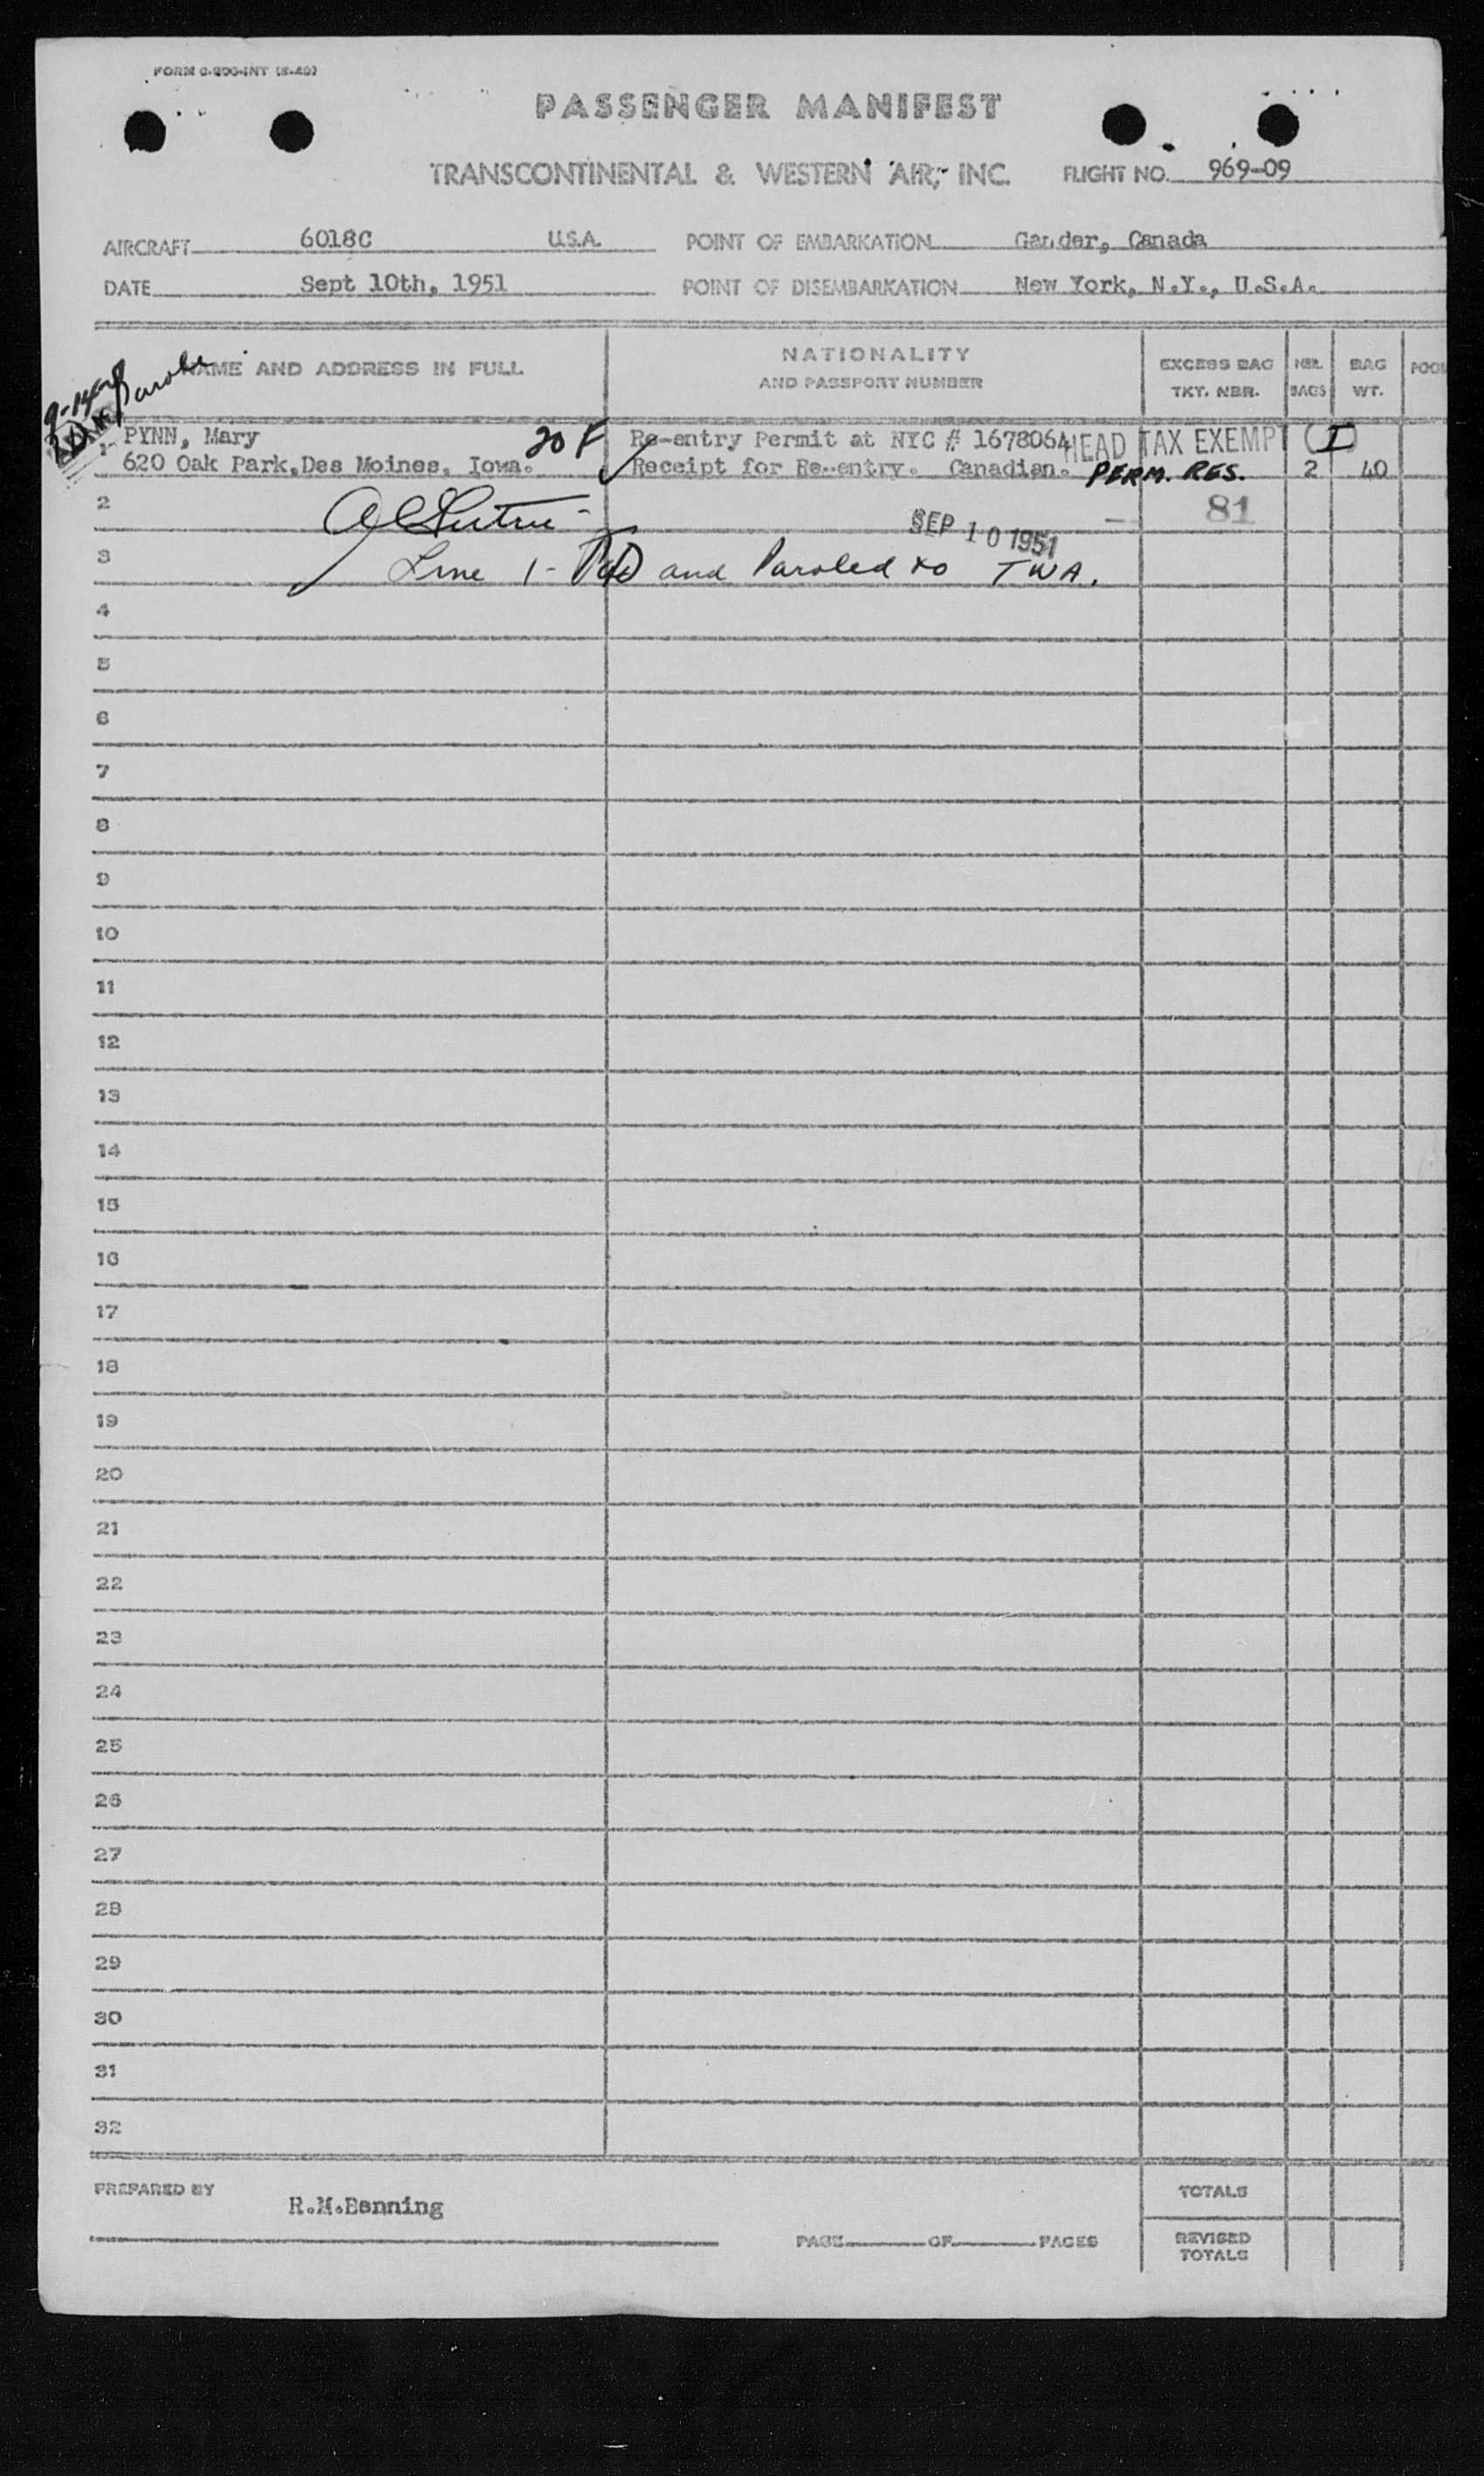 FORM O-800-INT (8-49)
PASSENGER MANIFEST
TRANSCONTINENTAL & WESTERN AIR, INC. FLIGHT NO. 969-09
AIRCRAFT 6018C U.S.A. POINT OF EMBARKATION Gander, Canada
DATE Sept 10th, 1951 POINT OF DISEMBARKATION New York, N.Y., U.S.A.
NAME AND ADDRESS IN FULL
NATIONALITY
AND PASSPORT NUMBER
EXCESS BAG
TKT. NBR.
NBR.
BAGS
BAG
WT.
POOL
Parole
1 PYNN, Mary 20 F Re-entry Permit at NYC # 1678064 HEAD TAX EXEMPT (I)
620 Oak Park, Des Moines, Iowa. Receipt for Re-entry. Canadian. PERM. RES. 2 40
2 SEP 10 1951 81
3 Line 1- and Paroled to TWA.
4
5
6
7
8
9
10
11
12
13
14
15
16
17
18
19
20
21
22
23
24
25
26
27
28
29
30
31
32
PREPARED BY R.M.Benning
TOTALS
PAGE OF PAGES
REVISED
TOTALS